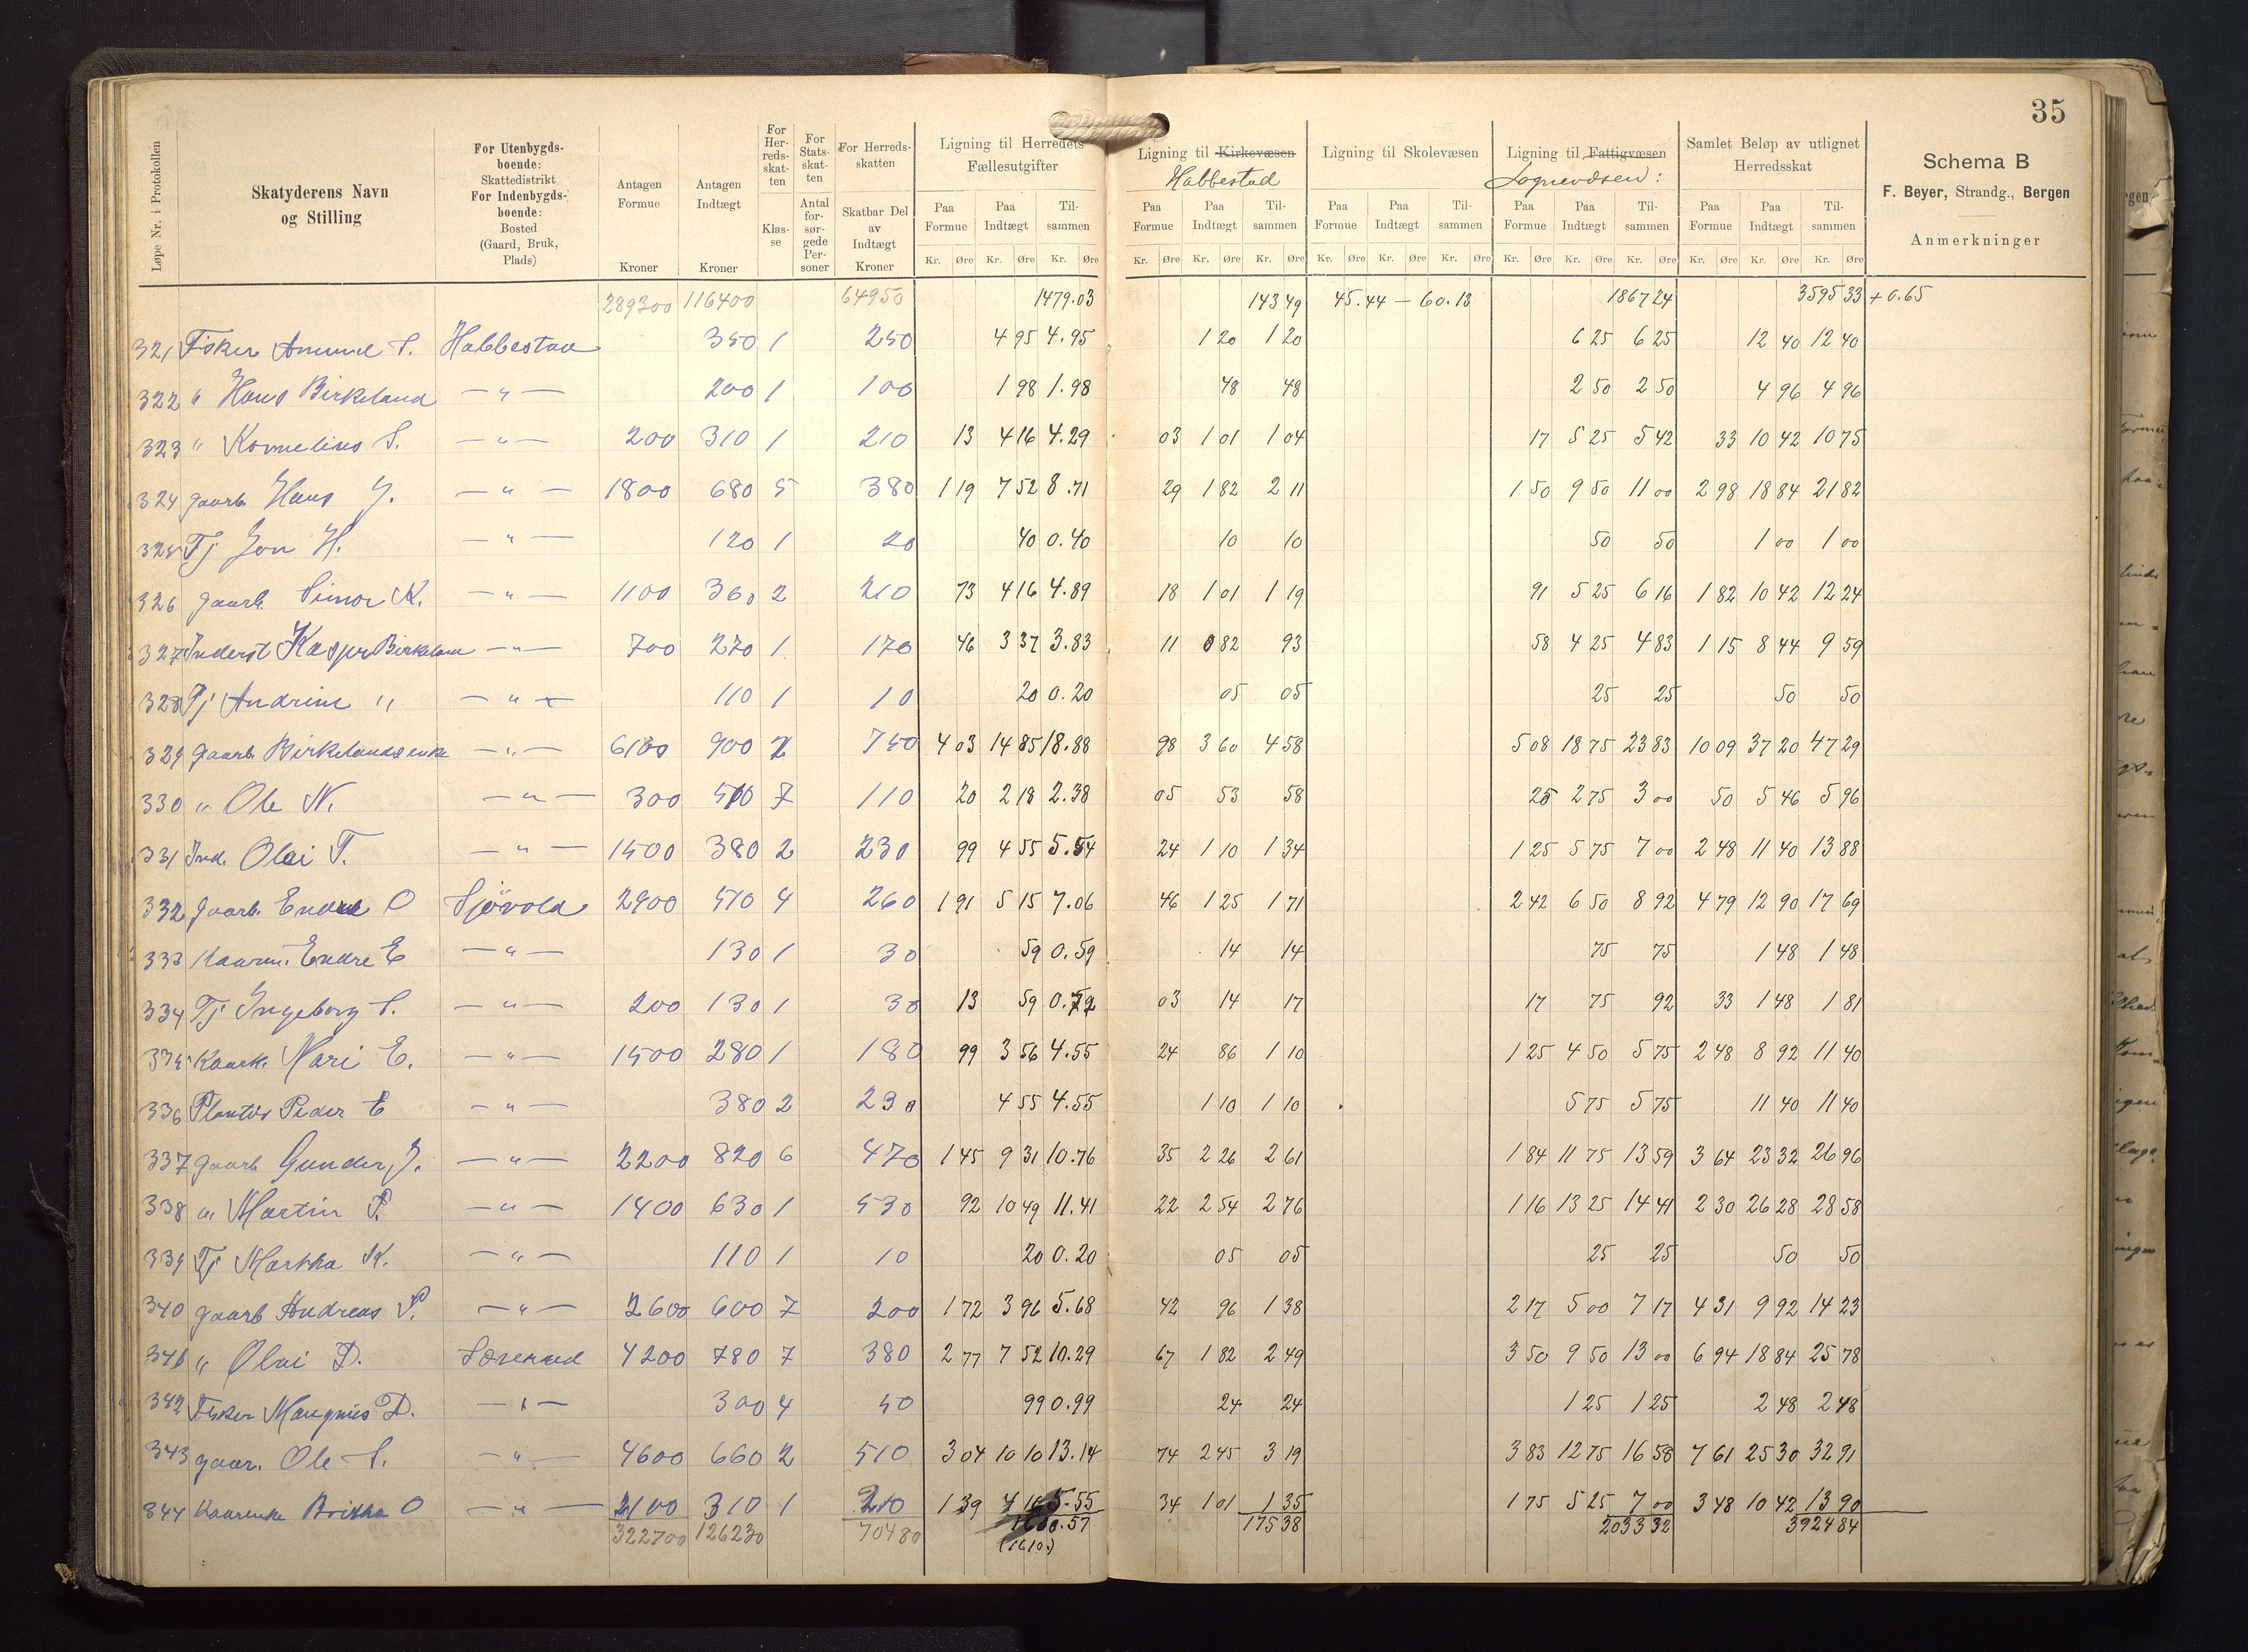 35
Løpe Nr. i Protokollen
Skatyderens Navn og Stilling
For Utenbygdsboende: Skattedistrikt For Indenbygdsboende: Bosted (Gaard, Bruk, Plads)
Antagen Formue Kroner
Antagen Indtægt Kroner
For Herredsskatten Klasse
For Statsskatten Antal forsørgede Personer
For Herredsskatten Skatbar Del av Indtægt Kroner
Ligning til Herredets Fællesutgifter
Ligning til Kirkevæsen Habbestad
Ligning til Skolevæsen
Ligning til Fattigvæsen Sognevæsen:
Samlet Beløp av utlignet Herredsskat
Schema B
F. Beyer, Strandg., Bergen
Anmerkninger
Paa Formue Paa Indtægt Tilsammen Paa Formue Paa Indtægt Tilsammen Paa Formue Paa Indtægt Tilsammen Paa Formue Paa Indtægt Tilsammen Paa Formue Paa Indtægt Tilsammen
Kr. Øre Kr. Øre Kr. Øre Kr. Øre Kr. Øre Kr. Øre Kr. Øre Kr. Øre Kr. Øre Kr. Øre Kr. Øre Kr. Øre Kr. Øre Kr. Øre Kr. Øre
289300 116400 64950 1479.03 143 49 45.44 — 60.13 1867 24 3595 33 + 0.65
321 Fisker S. Habbestad 350 1 250 4 95 4.95 1 20 1 20 6 25 6 25 12 40 12 40
322 " Hans Birkeland — " — 200 1 100 1 98 1.98 48 48 2 50 2 50 4 96 4 96
323 " Kornelius S. — " — 200 310 1 210 13 4 16 4.29 03 1 01 1 04 17 5 25 5 42 33 10 42 10 75
324 gaarb. Hans J. — " — 1800 680 5 380 1 19 7 52 8.71 29 1 82 2 11 1 50 9 50 11 00 2 98 18 84 21 82
325 Tj Jon H. — " — 120 1 20 40 0.40 10 10 50 50 1 00 1 00
326 gaarb. Simon K. — " — 1100 360 2 210 73 4 16 4.89 18 1 01 1 19 91 5 25 6 16 1 82 10 42 12 24
327 Inderst Kasper Birkeland — " — 700 270 1 170 46 3 37 3.83 11 0 82 93 58 4 25 4 83 1 15 8 44 9 59
328 Tj Andrine " — " — 110 1 10 20 0.20 05 05 25 25 50 50
329 gaarb. Birkelandsenke — " — 6100 900 2 750 4 03 14 85 18.88 98 3 60 4 58 5 08 18 75 23 83 10 09 37 20 47 29
330 " Ole N. — " — 300 510 7 110 20 2 18 2.38 05 53 58 25 2 75 3 00 50 5 46 5 96
331 Ind. Olai T. — " — 1500 380 2 230 99 4 55 5.54 24 1 10 1 34 1 25 5 75 7 00 2 48 11 40 13 88
332 gaarb. Endre O Sjövold 2900 510 4 260 1 91 5 15 7.06 46 1 25 1 71 2 42 6 50 8 92 4 79 12 90 17 69
333 Kaarm. Endre E — " — 130 1 30 59 0.59 14 14 75 75 1 48 1 48
334 Tj Ingeborg S. — " — 200 130 1 30 13 59 0.72 03 14 17 17 75 92 33 1 48 1 81
335 Kaark. Mari E. — " — 1500 280 1 180 99 3 56 4.55 24 86 1 10 1 25 4 50 5 75 2 48 8 92 11 40
336 Peder E — " — 380 2 230 4 55 4.55 1 10 1 10 5 75 5 75 11 40 11 40
337 gaarb Gunder J. — " — 2200 820 6 470 1 45 9 31 10.76 35 2 26 2 61 1 84 11 75 13 59 3 64 23 32 26 96
338 " Martin P. — " — 1400 630 1 530 92 10 49 11.41 22 2 54 2 76 1 16 13 25 14 41 2 30 26 28 28 58
339 Tj Martha K. — " — 110 1 10 20 0.20 05 05 25 25 50 50
340 gaarb Andreas P. — " — 2600 600 7 200 1 72 3 96 5.68 42 96 1 38 2 17 5 00 7 17 4 31 9 92 14 23
341 " Olai D. 4200 780 7 380 2 77 7 52 10.29 67 1 82 2 49 3 50 9 50 13 00 6 94 18 84 25 78
342 Fisker Mangnus D. — " — 300 4 50 99 0.99 24 24 1 25 1 25 2 48 2 48
343 gaar. Ole S. — " — 4600 660 2 510 3 04 10 10 13.14 74 2 45 3 19 3 83 12 75 16 58 7 61 25 30 32 91
344 Kaarenke Britha O — " — 2100 310 1 210 1 39 4 16 5.55 34 1 01 1 35 1 75 5 25 7 00 3 48 10 42 13 90
322700 126230 70480 1610.57 175 38 2033 32 3924 84
(1610.)